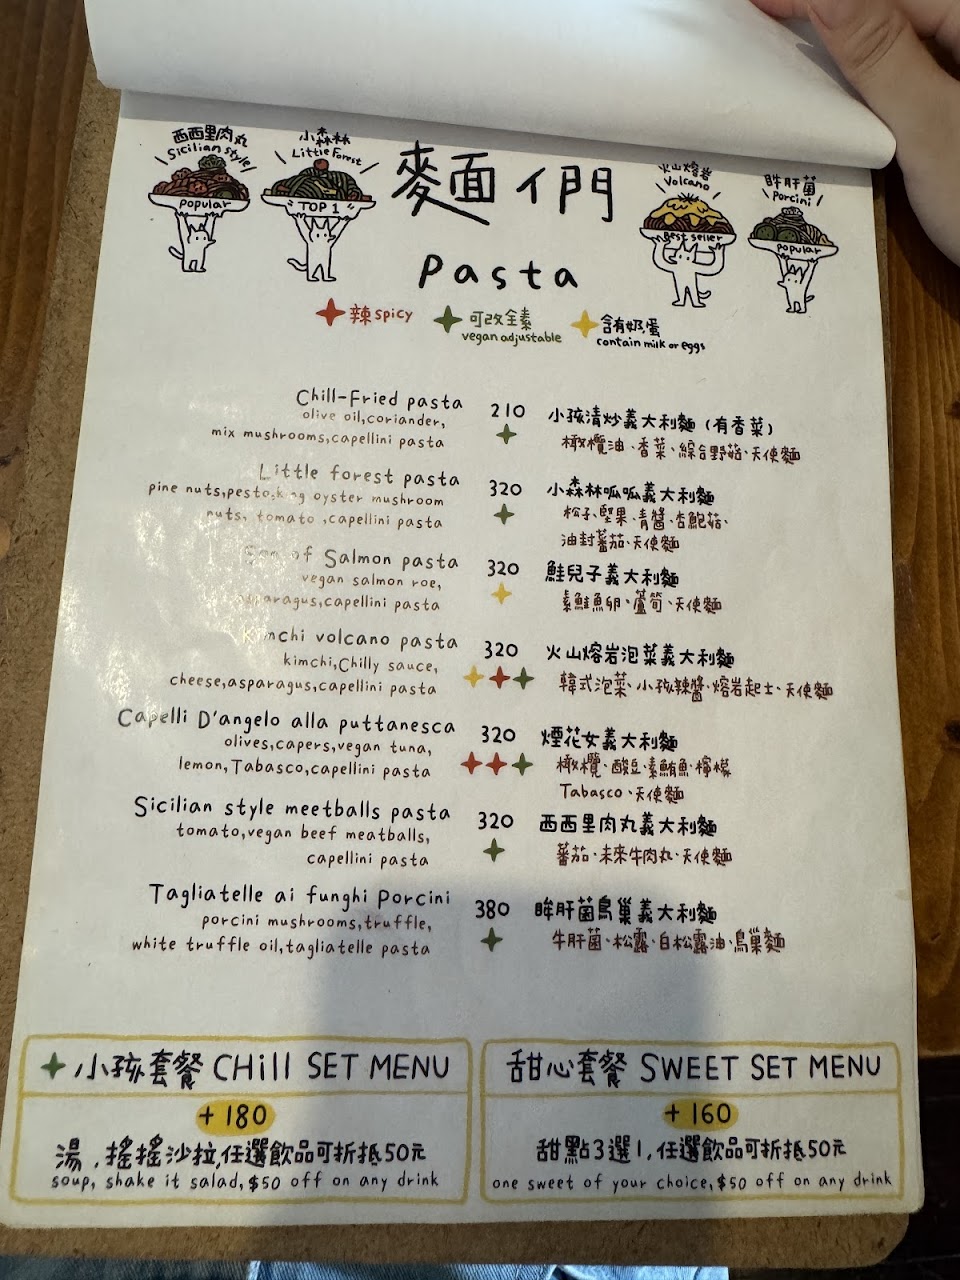 西西里肉丸
Sicilian style
popular
小森林
Little Forest
TOP 1
麵們
Pasta
火山熔岩
Volcano
Best seller
眸肝菌
Porcini
popular
辣 spicy
可改全素
vegan adjustable
含有奶蛋
contain milk or eggs
Chill-Fried pasta
olive oil,coriander,
mix mushrooms,capellini pasta
210
小孩清炒義大利麵（有香菜）
橄欖油、香菜、綜合野菇、天使麵
Little forest pasta
pine nuts,pesto,king oyster mushroom
nuts, tomato ,capellini pasta
320
小森林呱呱義大利麵
松子、堅果、青醬、杏鮑菇、
油封蕃茄、天使麵
of Salmon pasta
vegan salmon roe,
asparagus,capellini pasta
320
鮭兒子義大利麵
素鮭魚卵、蘆筍、天使麵
Kimchi volcano pasta
kimchi,Chilly sauce,
cheese,asparagus,capellini pasta
320
火山熔岩泡菜義大利麵
韓式泡菜、小孩辣醬、熔岩起士、天使麵
Capelli D'angelo alla puttanesca
olives,capers,vegan tuna,
lemon,Tabasco,capellini pasta
320
煙花女義大利麵
橄欖、酸豆、素鮪魚、檸檬
Tabasco、天使麵
Sicilian style meetballs pasta
tomato,vegan beef meatballs,
capellini pasta
320
西西里肉丸義大利麵
蕃茄、未來牛肉丸、天使麵
Tagliatelle ai funghi Porcini
porcini mushrooms,truffle,
white truffle oil,tagliatelle pasta
380
眸肝菌鳥巢義大利麵
牛肝菌、松露、白松露油、鳥巢麵
小孩套餐 CHill SET MENU
+180
湯，搖搖沙拉,任選飲品可折抵50元
soup, shake it salad,$50 off on any drink
甜心套餐 SWEET SET MENU
+160
甜點3選1,任選飲品可折抵50元
one sweet of your choice,$50 off on any drink